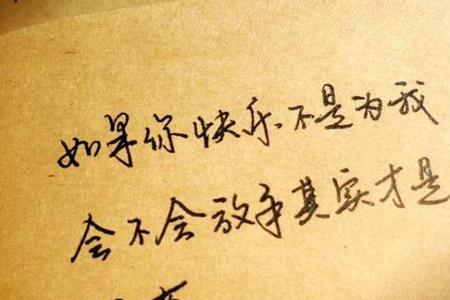 如果你快乐不是为我
会不会放手其实才是